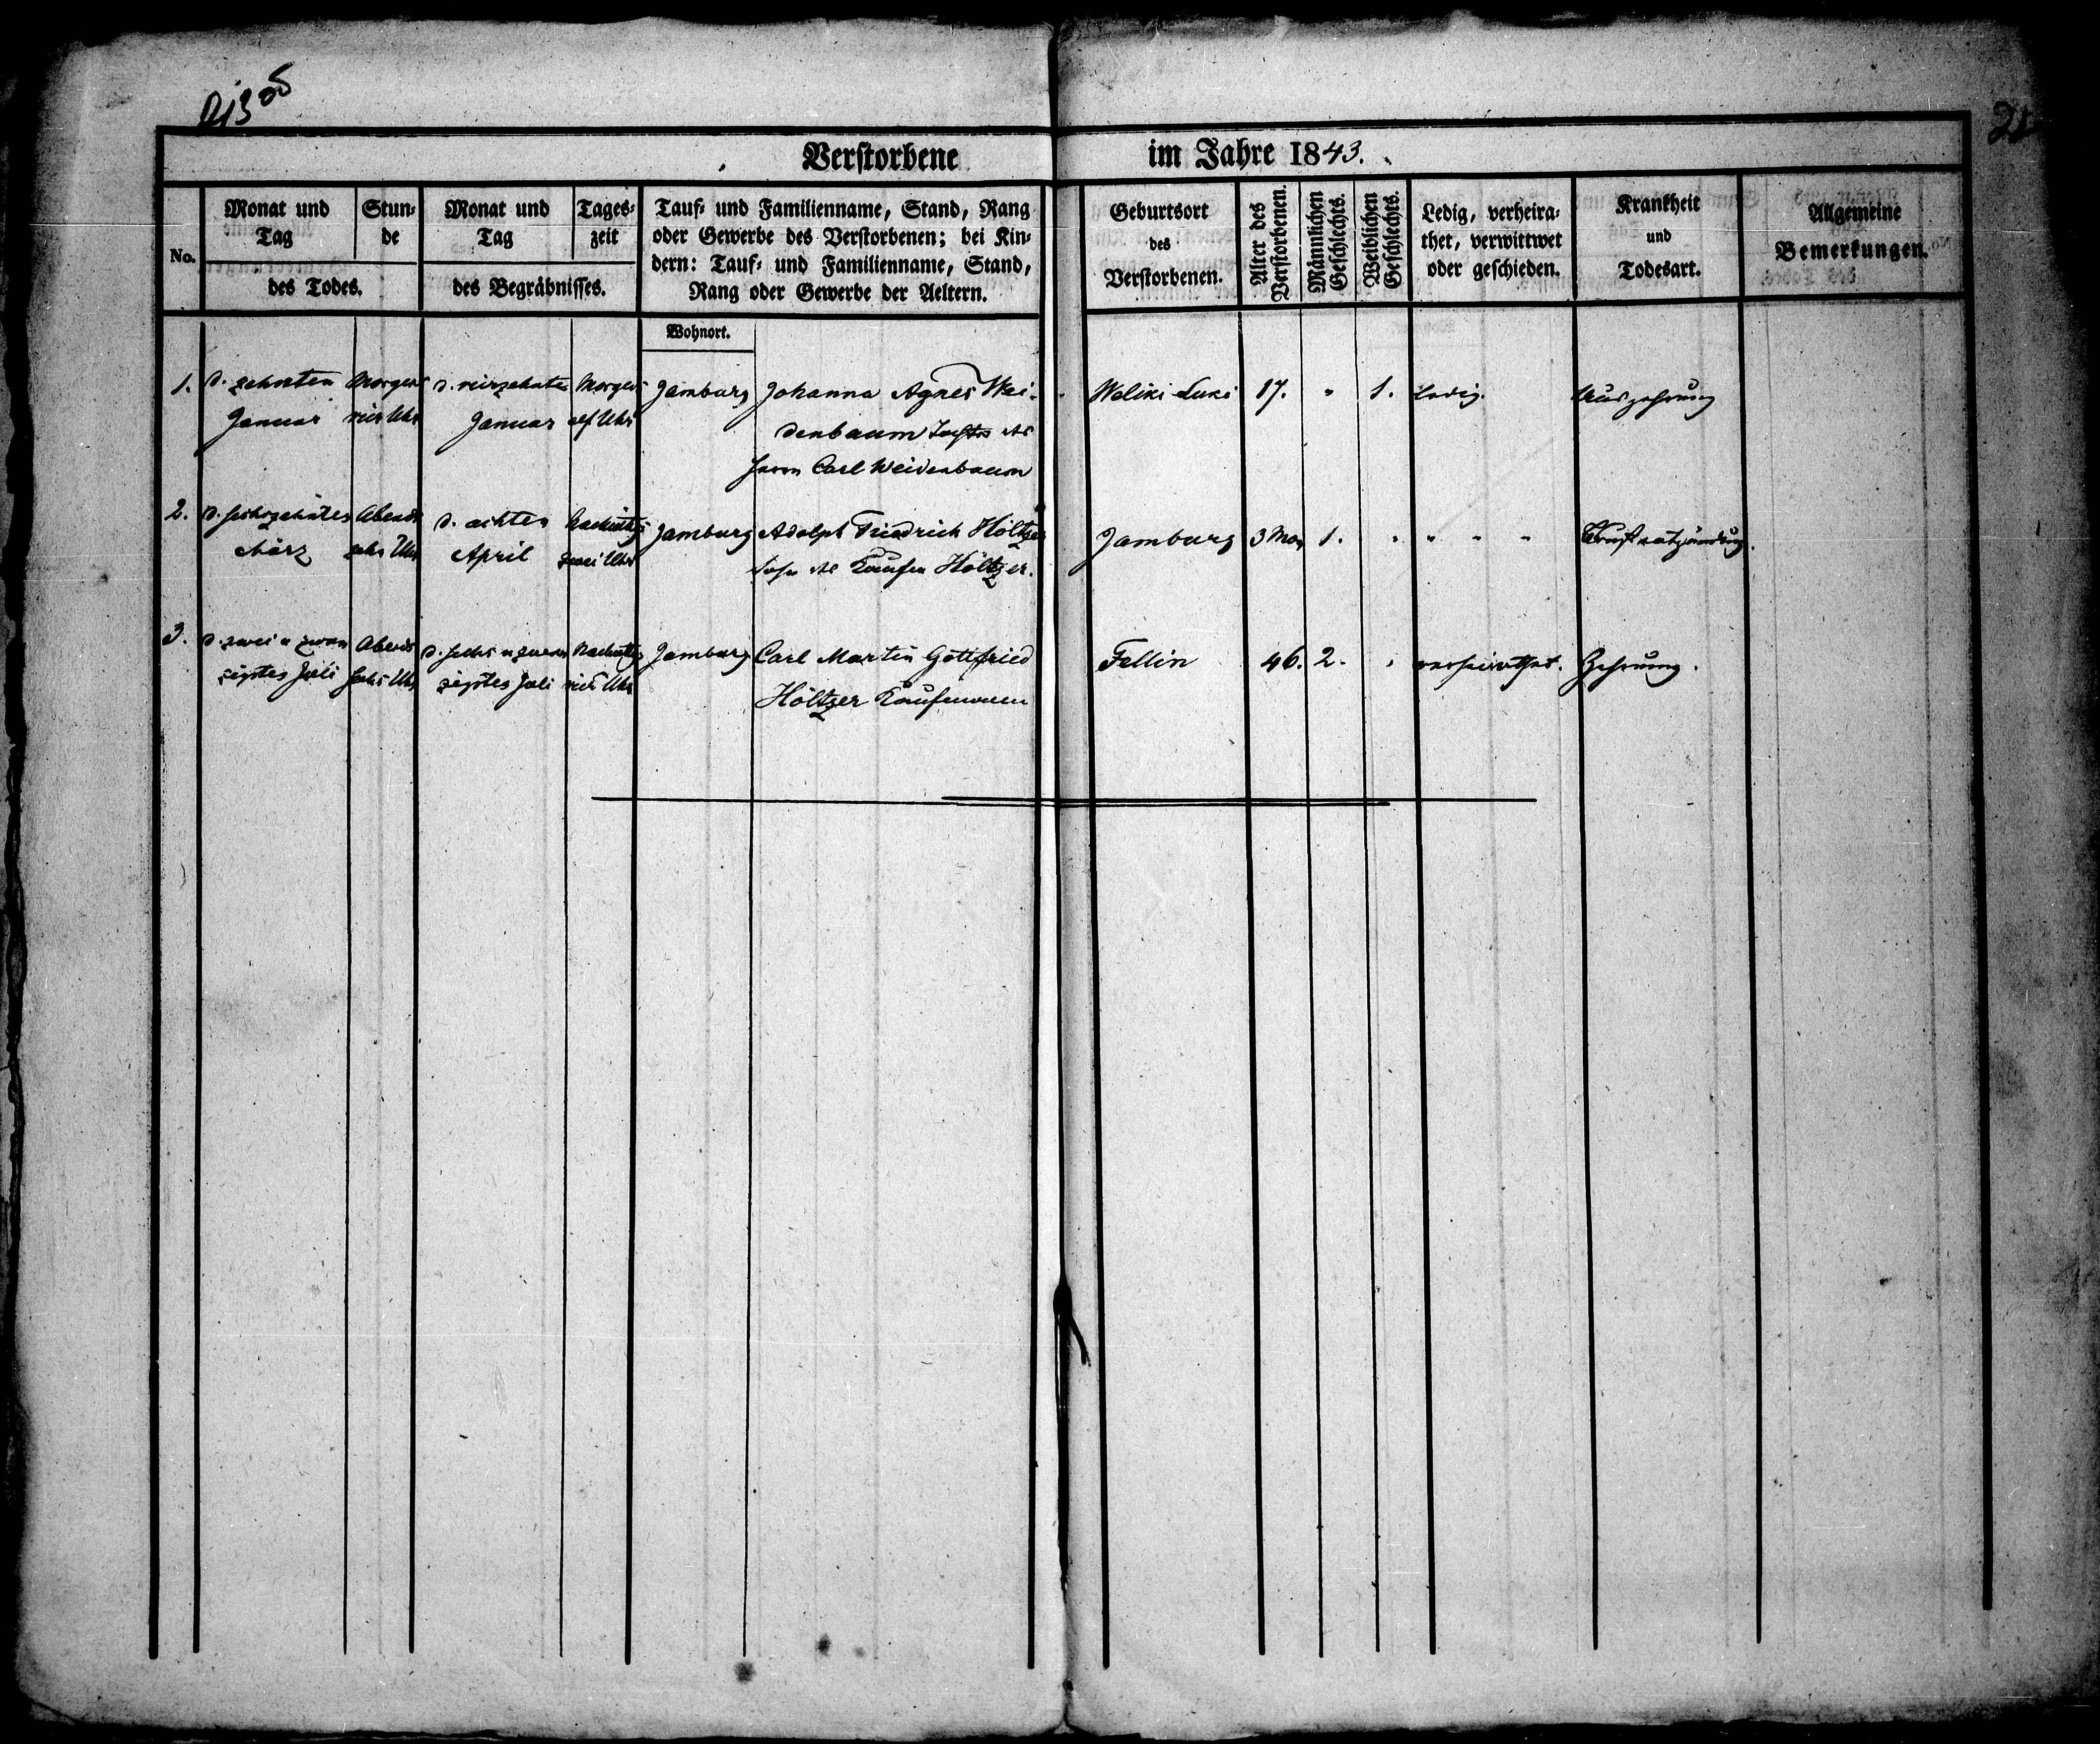 Verstorbene im Jahre 1843.
No.
Monat und Tag
Stun-
de
des Todes.
Monat und Tag
Tages-
zeit
des Begräbnisses.
Tauf- und Familienname, Stand, Rang
oder Gewerbe des Verstorbenen; bei Kin-
dern: Tauf- und Familienname, Stand,
Rang oder Gewerbe der Aeltern.
Wohnort.
Geburtsort
des
Verstorbenen.
Alter des
Verstorbenen.
Männlichen
Geschlechts.
Weiblichen
Geschlechts.
Ledig, verheira-
thet, verwittwet
oder geschieden.
Krankheit
und
Todesart.
Allgemeine
Bemerkungen.
1. d. zehnten Morgens d. vierzehnten Morgens Jamburg Johanna Agnes Wei- Weliki Luki 17. " 1. ledig. Auszehrung
Januar vier Uhr Januar elf Uhr denbaum Tochter des
Herrn Carl Weidenbaum
2. d. sechszehntes Abends d. achten Nachmittg Jamburg Adolph Friedrich Höltzer Jamburg 3 Mon 1. " " " " Brustentzündung.
März sechs Uhr April zwei Uhr Sohn des Kaufm Höltzer.
3. d. zwei u zwan Abends d. sechs u zwan Nachmittg Jamburg Carl Martin Gottfried Fellin 46. 2. " verheirathet. Zehrung.
zigstes Juli sechs Uhr zigstes Juli vier Uhr Höltzer Kaufmann